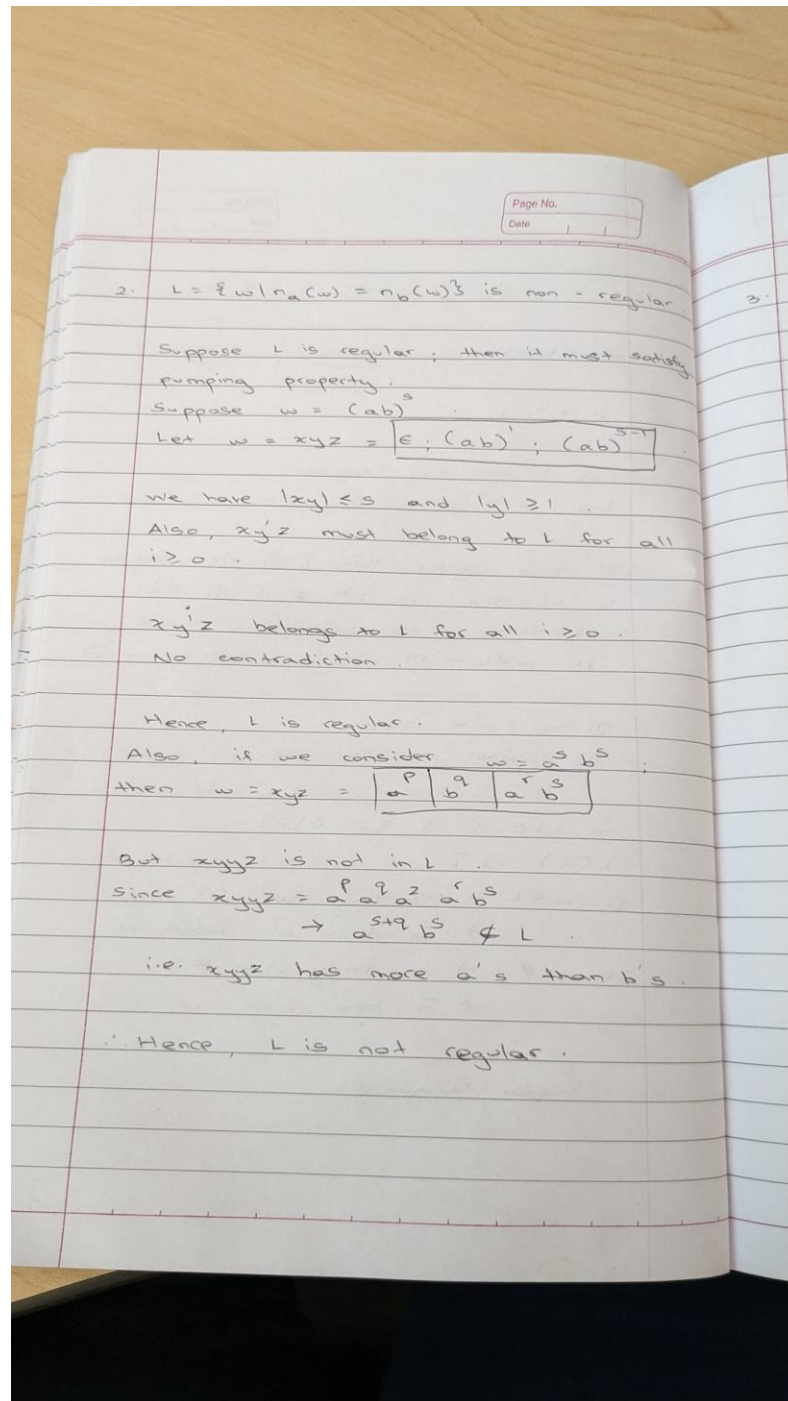 Page No.
Date
2. L = {w | nₐ(w) = n_b(w)} is non - regular.
3.
Suppose L is regular, then it must satisfy
pumping property.
Suppose w = (ab)^s
Let w = xyz = ϵ ; (ab)^1 ; (ab)^{s-1}.
We have |xy| ≤ s and |y| ≥ 1.
Also, xy^iz must belong to L for all
i ≥ 0.
xy^iz belongs to L for all i ≥ 0.
No contradiction.
Hence, L is regular.
Also, if we consider w = a^s b^s ;
then w = xyz = | a^p | b^q | a^r b^s |
But xyyz is not in L.
Since xyyz = a^p a^q a^2 a^r b^s
→ a^{s+q} b^s ∉ L.
i.e. xyyz has more a's than b's.
∴ Hence, L is not regular.